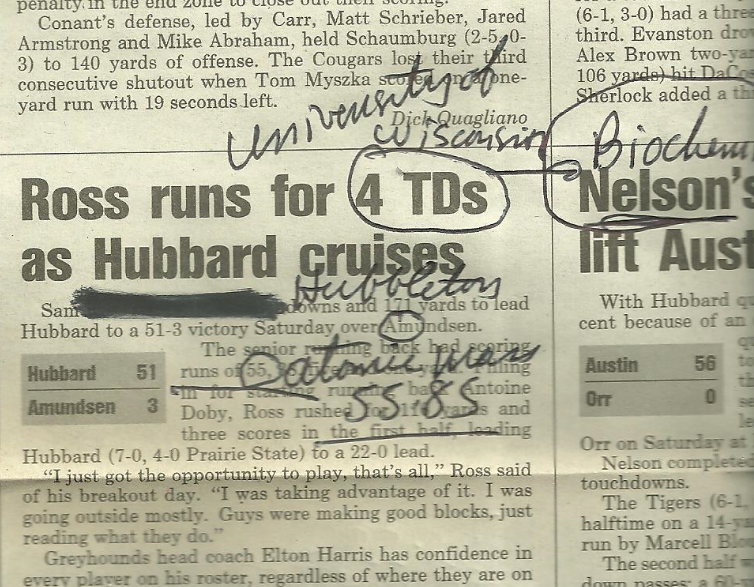 penalty in the end zone to close out their scoring.
Conant's defense, led by Carr, Matt Schrieber, Jared
Armstrong and Mike Abraham, held Schaumburg (2-5, 0-
3) to 140 yards of offense. The Cougars lost their third
consecutive shutout when Tom Myszka scored on a one-
yard run with 19 seconds left.
Dick Quagliano
University of
Wisconsin
Ross runs for 4 TDs
as Hubbard cruises
Hubbleton
Sam
downs and 171 yards to lead
Hubbard to a 51-3 victory Saturday over Amundsen.
The senior rushing back had scoring
runs of 55,
atomic mass
55.85
Hubbard 51
Amundsen 3
in for starting running back Antoine
Doby, Ross rushed for yards and
three scores in the first half, leading
Hubbard (7-0, 4-0 Prairie State) to a 22-0 lead.
"I just got the opportunity to play, that's all," Ross said
of his breakout day. "I was taking advantage of it. I was
going outside mostly. Guys were making good blocks, just
reading what they do."
Greyhounds head coach Elton Harris has confidence in
every player on his roster, regardless of where they are on
(6-1, 3-0) had a thre
third. Evanston dro
Alex Brown two-ya
106 yards) hit DaCo
Sherlock added a th
Biochem
Nelson's
lift Aust
With Hubbard q
cent because of an
Austin 56
Orr 0
Orr on Saturday at
Nelson completed
touchdowns.
The Tigers (6-1,
halftime on a 14-ya
run by Marcell Blo
The second half
down passes: a 60